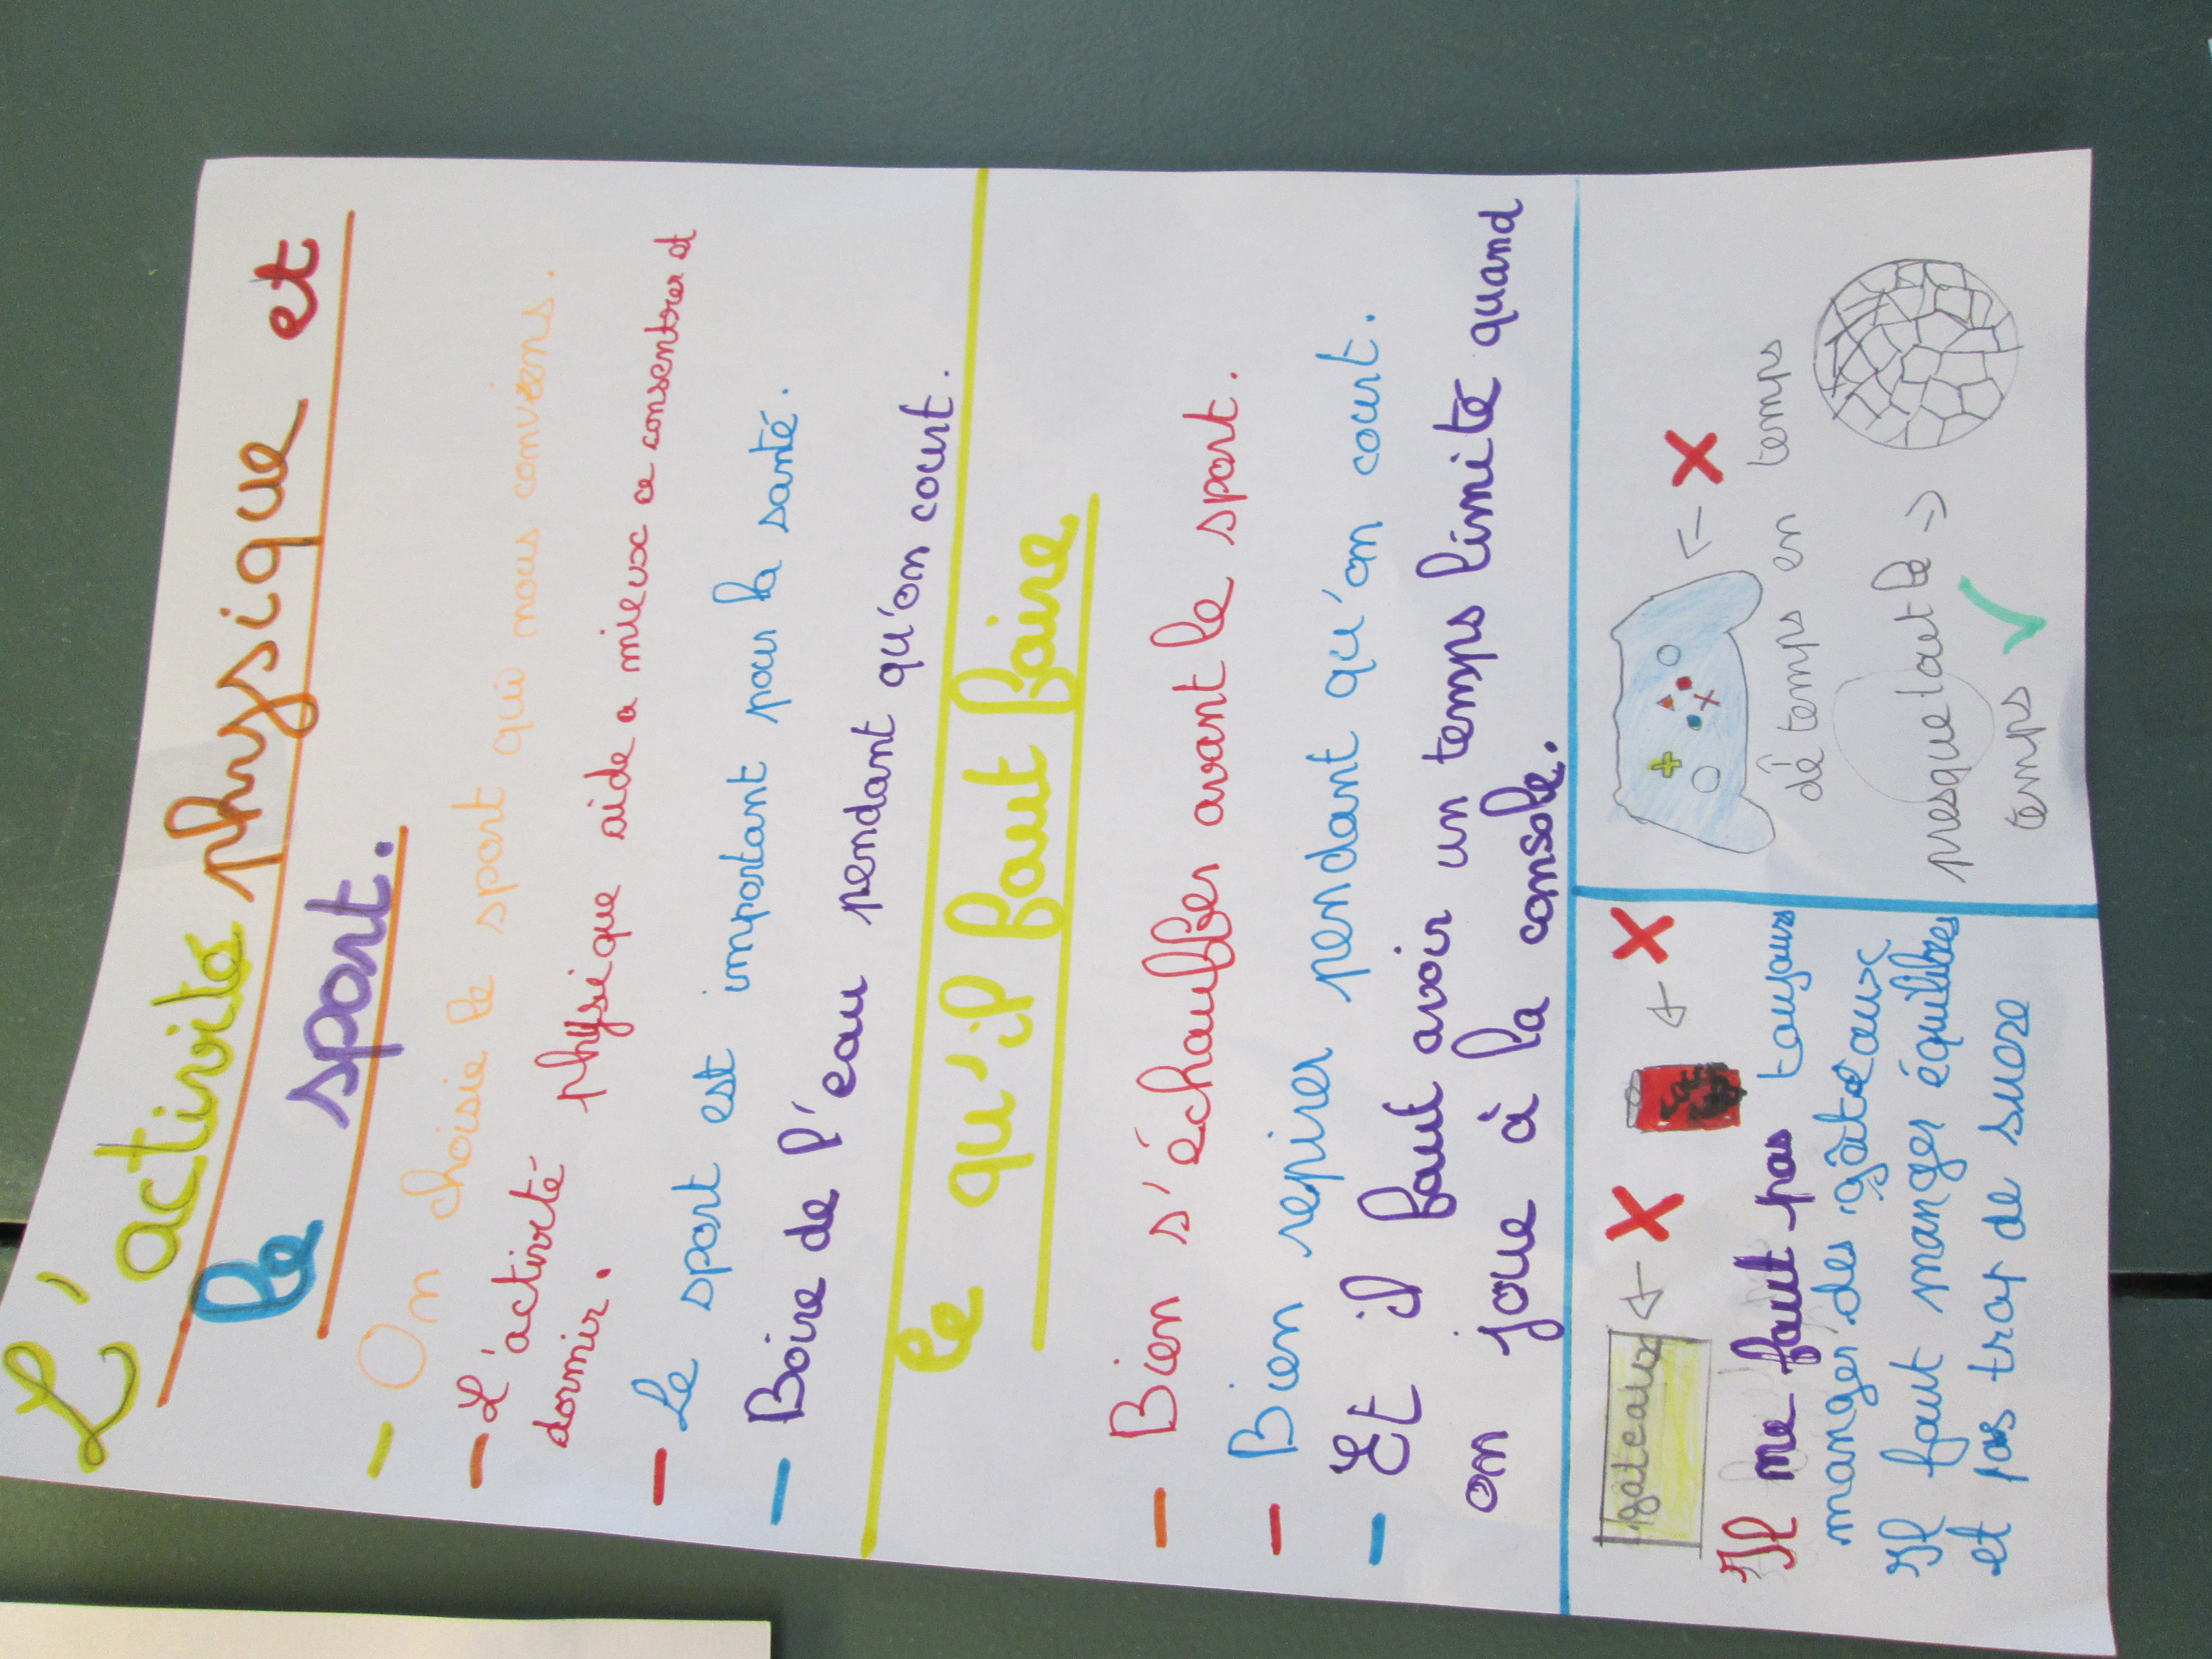 L'activité physique et
le sport.
- On choisie le sport qui nous conviens.
- L'activité physique aide a mieux ce consentrer et
dormir.
- Le sport est important pour la santé.
- Boire de l'eau pendant qu'on court.
Ce qu'il faut faire
- Bien s'échauffer avant le sport.
- Bien repirer pendant qu'on court.
- Et il faut avoir un temps limité quand
on joue à la console.
gâteaux
Il ne faut pas toujours
manger des gâteaux
Il faut manger équilibrés
et pas trop de sucre
dê temps en temps
presque tout le ->
temps